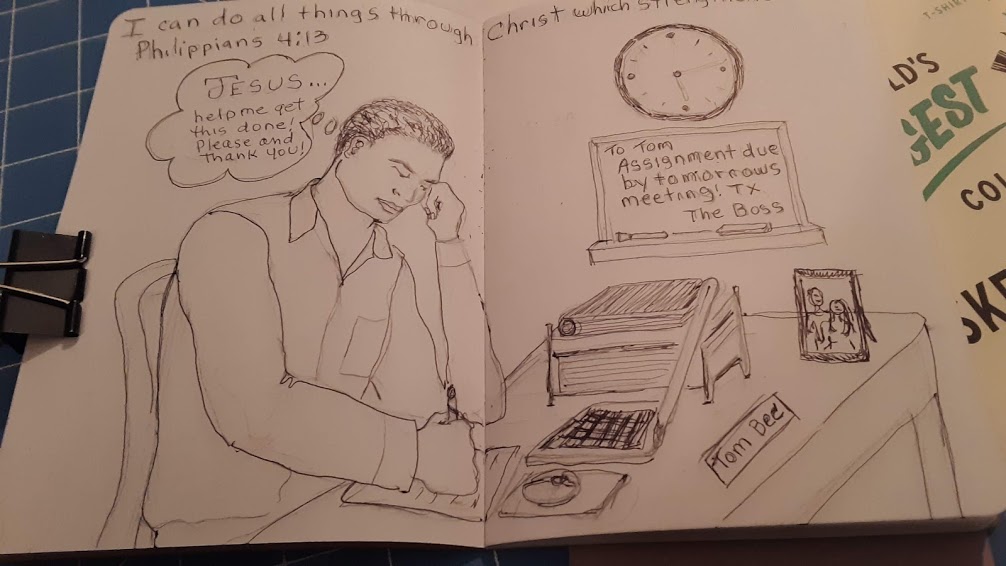 I can do all things through Christ which
Philippians 4:13
JESUS...
help me get
this done!
Please and
Thank you!
To Tom
Assignment due
by tomorrows
meeting! TX
The Boss
Tom Bee
T-SHIRT
LD'S
GEST
COL
SKE